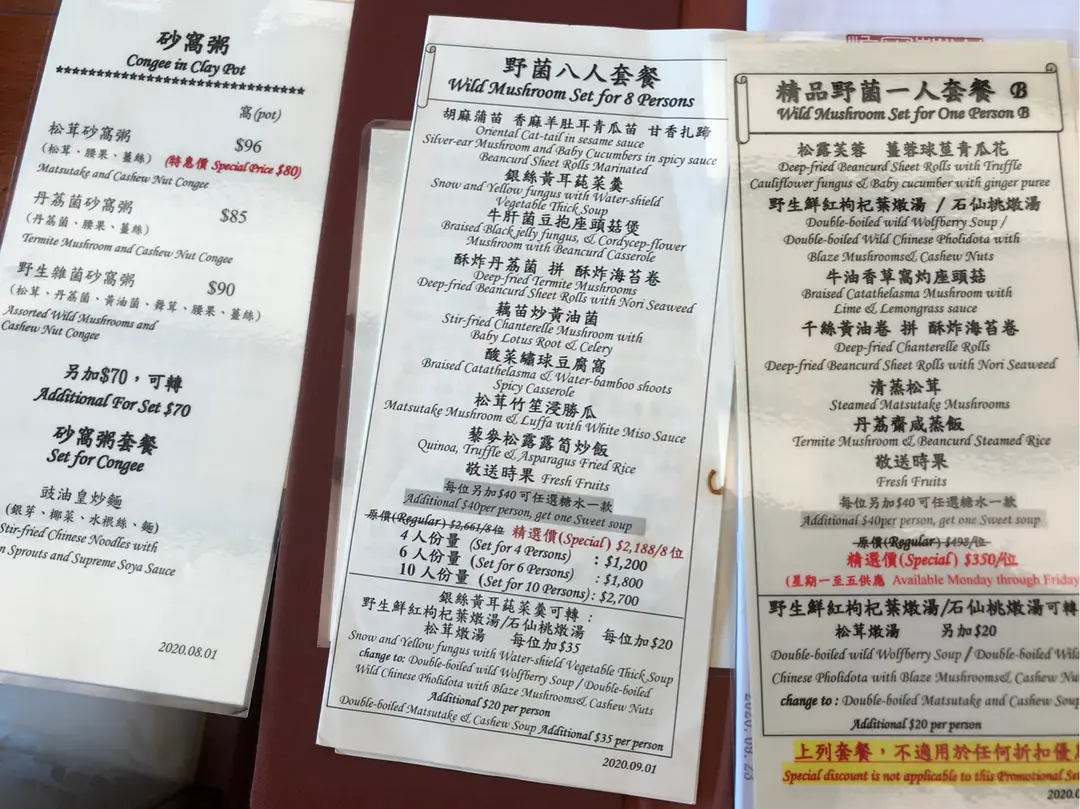 砂窩粥
Congee in Clay Pot
****************************
窩(pot)
松茸砂窩粥 $96
(松茸、腰果、薑絲) (特惠價 Special Price $80)
Matsutake and Cashew Nut Congee
丹荔菌砂窩粥 $85
(丹荔菌、腰果、薑絲)
Termite Mushroom and Cashew Nut Congee
野生雜菌砂窩粥 $90
(松茸、丹荔菌、黃油菌、舞茸、腰果、薑絲)
Assorted Wild Mushrooms and
Cashew Nut Congee
另加$70，可轉
Additional For Set $70
砂窩粥套餐
Set for Congee
豉油皇炒麵
(銀芽、椰菜、水根絲、麵)
Stir-fried Chinese Noodles with
Sprouts and Supreme Soya Sauce
2020.08.01
野菌八人套餐
Wild Mushroom Set for 8 Persons
胡麻蒲苗 香麻羊肚耳青瓜苗 甘香扎蹄
Oriental Cat-tail in sesame sauce
Silver-ear Mushroom and Baby Cucumbers in spicy sauce
Beancurd Sheet Rolls Marinated
銀絲黃耳蒓菜羹
Snow and Yellow fungus with Water-shield
Vegetable Thick Soup
牛肝菌豆抱座頭菇煲
Braised Black jelly fungus, & Cordycep-flower
Mushroom with Beancurd Casserole
酥炸丹荔菌 拼 酥炸海苔卷
Deep-fried Termite Mushrooms
Deep-fried Beancurd Sheet Rolls with Nori Seaweed
藕苗炒黃油菌
Stir-fried Chanterelle Mushroom with
Baby Lotus Root & Celery
酸菜繡球豆腐窩
Braised Catathelasma & Water-bamboo shoots
Spicy Casserole
松茸竹笙浸勝瓜
Matsutake Mushroom & Luffa with White Miso Sauce
藜麥松露露筍炒飯
Quinoa, Truffle & Asparagus Fried Rice
敬送時果 Fresh Fruits
每位另加$40可任選糖水一款
Additional $40per person, get one Sweet soup
原價(Regular) $2,661/8位 精選價(Special) $2,188/8位
4 人份量 (Set for 4 Persons) : $1,200
6 人份量 (Set for 6 Persons) : $1,800
10 人份量 (Set for 10 Persons) : $2,700
銀絲黃耳蒓菜羹可轉：
野生鮮紅枸杞葉燉湯/石仙桃燉湯 每位加$20
松茸燉湯 每位加$35
Snow and Yellow fungus with Water-shield Vegetable Thick Soup
change to: Double-boiled wild Wolfberry Soup / Double-boiled
Wild Chinese Pholidota with Blaze Mushrooms& Cashew Nuts
Additional $20 per person
Double-boiled Matsutake & Cashew Soup Additional $35 per person
2020.09.01
精品野菌一人套餐 B
Wild Mushroom Set for One Person B
松露芙蓉 薑蓉球莖青瓜花
Deep-fried Beancurd Sheet Rolls with Truffle
Cauliflower fungus & Baby cucumber with ginger puree
野生鮮紅枸杞葉燉湯 / 石仙桃燉湯
Double-boiled wild Wolfberry Soup /
Double-boiled Wild Chinese Pholidota with
Blaze Mushrooms& Cashew Nuts
牛油香草窩灼座頭菇
Braised Catathelasma Mushroom with
Lime & Lemongrass sauce
千絲黃油卷 拼 酥炸海苔卷
Deep-fried Chanterelle Rolls
Deep-fried Beancurd Sheet Rolls with Nori Seaweed
清蒸松茸
Steamed Matsutake Mushrooms
丹荔齋咸蒸飯
Termite Mushroom & Beancurd Steamed Rice
敬送時果
Fresh Fruits
每位另加$40可任選糖水一款
Additional $40per person, get one Sweet soup
原價(Regular) $498/位
精選價(Special) $350/位
(星期一至五供應 Available Monday through Friday
野生鮮紅枸杞葉燉湯/石仙桃燉湯可轉
松茸燉湯 另加$20
Double-boiled wild Wolfberry Soup / Double-boiled Wild
Chinese Pholidota with Blaze Mushrooms& Cashew Nu
change to : Double-boiled Matsutake and Cashew Soup
Additional $20 per person
上列套餐，不適用於任何折扣優
Special discount is not applicable to this Promotional Se
2020.0